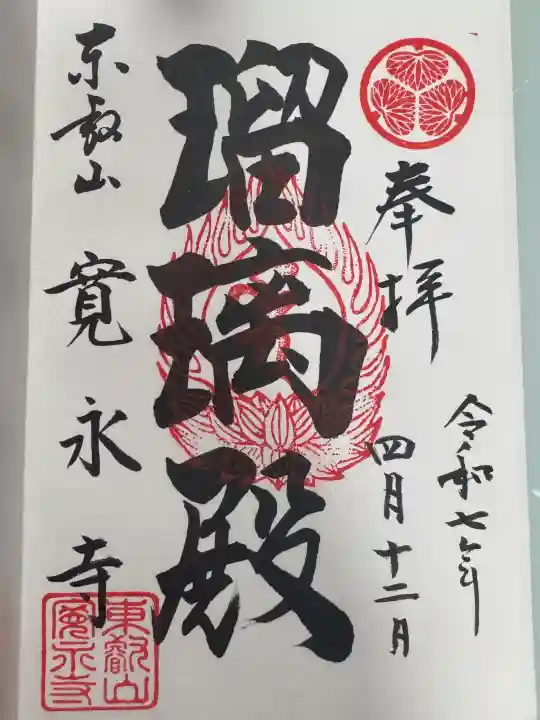 奉拝
令和七年
四月十二月
瑠璃殿
東叡山 寛永寺
東叡山
寛永寺